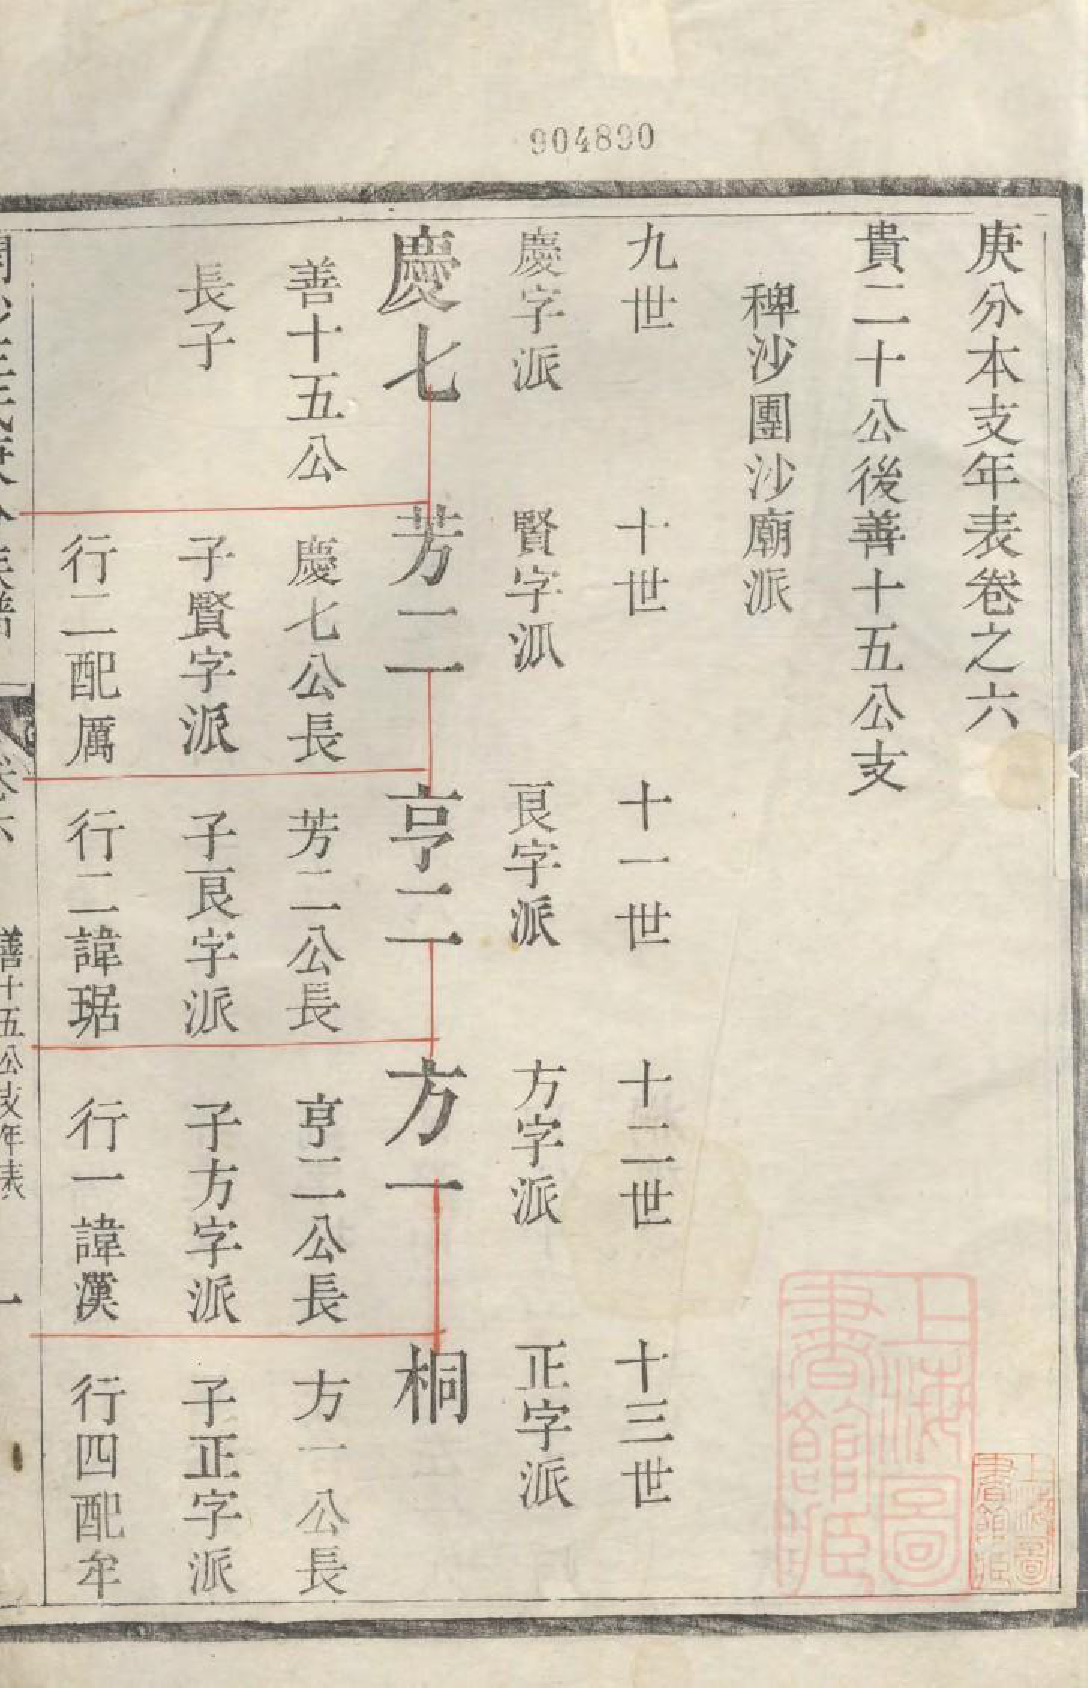 904890
庚分本支年表卷之六
貴二十公後善十五公支
稗沙團沙廟派
九世
十世
十一世
十二世
十三世
慶字派
賢字派
艮字派
方字派
正字派
慶七
芳二
亨二
方一
桐
善十五公
長子
慶七公長
子賢字派
行二配厲
芳二公長
子艮字派
行二諱琚
亨二公長
子方字派
行一諱漢
方一公長
子正字派
行四配牟
卷六
善十五公支年表
一
上海圖書館藏
上海圖書館藏